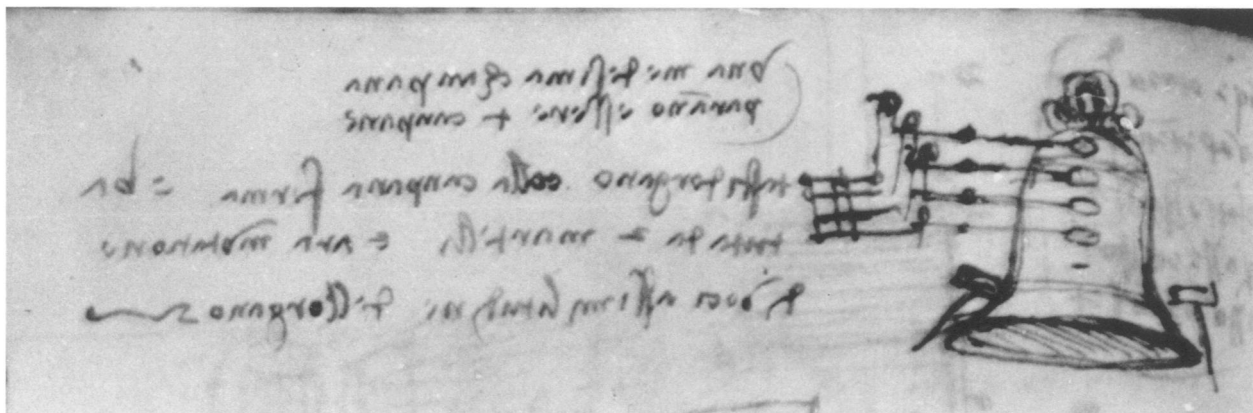 una medesima chanpana
parrano essere 4 canpane
tasti dorgano colla canpana ferma e ba
ttuta da 2 martelli e ara mutatione
di voce assimilitudine dellorgano